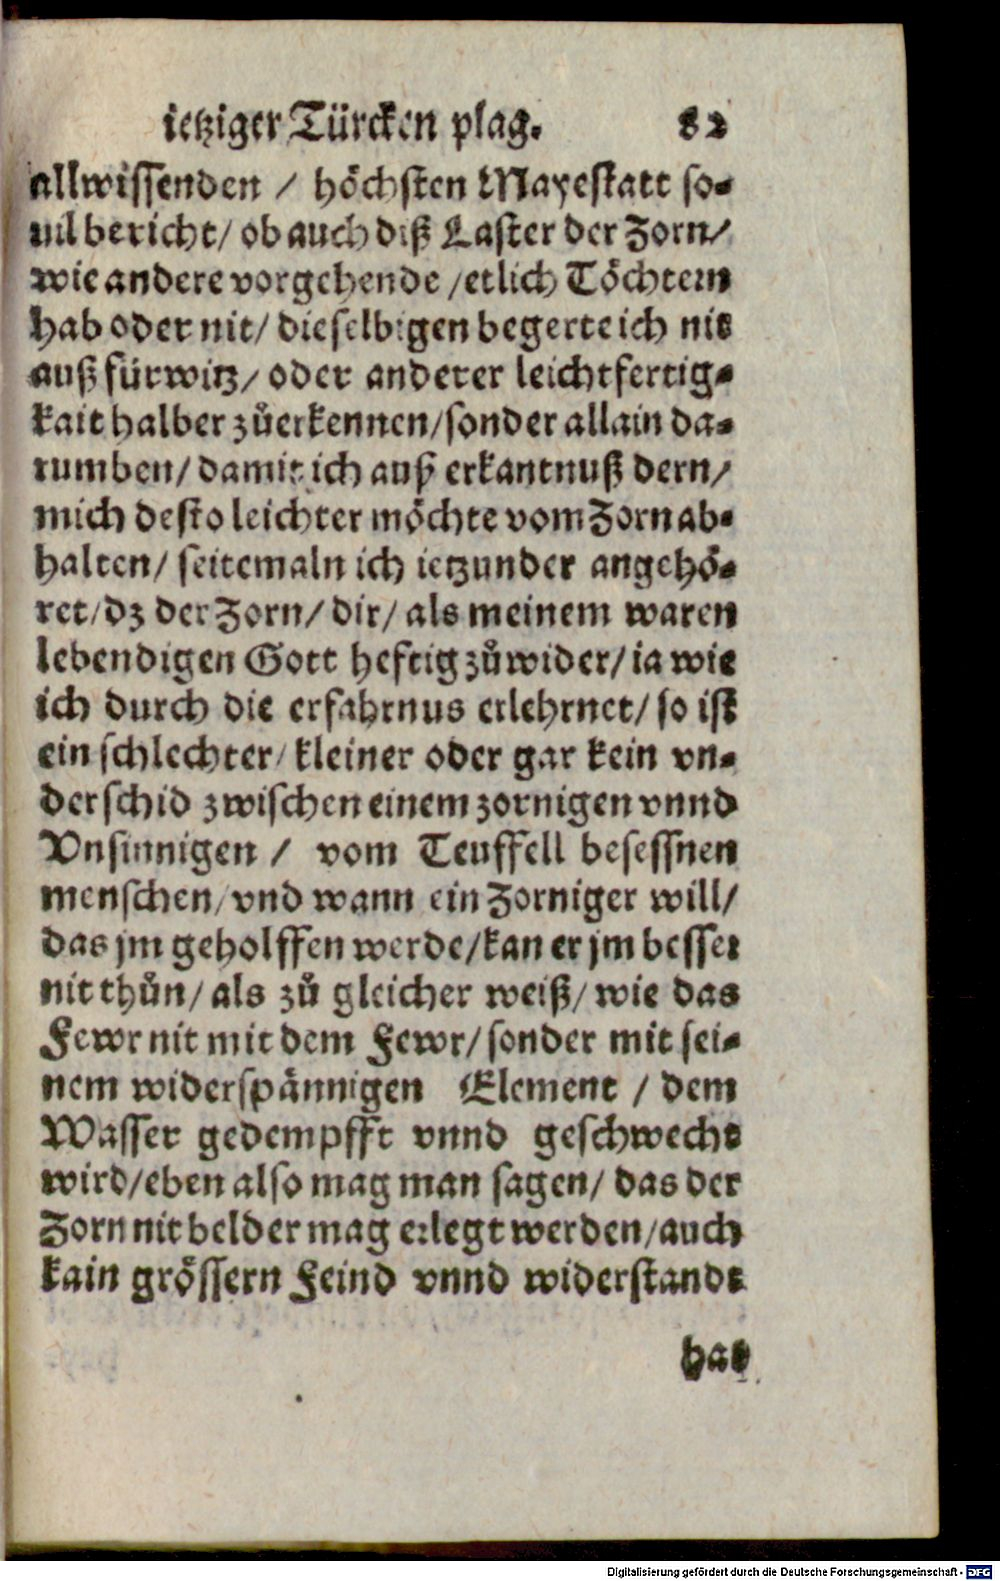 ietziger Türcken plag. 82
allwissenden / höchsten Mayestatt so-
uil bericht/ ob auch diß Laster der Zorn/
wie andere vorgehende /etlich Töchtern
hab oder nit/ dieselbigen begerte ich nit
auß fürwitz/ oder anderer leichtfertig-
kait halber zůerkennen/sonder allain da-
rumben/ damit ich auß erkantnuß dern/
mich desto leichter möchte vom Zorn ab-
halten/ seitemaln ich ietzunder angehö-
ret/dz der Zorn/ dir/ als meinem waren
lebendigen Gott heftig zůwider/ ia wie
ich durch die erfahrnus erlehrnet/ so ist
ein schlechter/ kleiner oder gar kein vn-
derschid zwischen einem zornigen vnnd
Vnsinnigen / vom Teuffell besessnen
menschen/ vnd wann ein Zorniger will/
das jm geholffen werde/kan er jm besser
nit thůn/ als zů gleicher weiß/ wie das
Fewr nit mit dem Fewr/ sonder mit sei-
nem widerspännigen Element / dem
Wasser gedempfft vnnd geschwecht
wird/eben also mag man sagen/ das der
Zorn nit belder mag erlegt werden/auch
kain grössern Feind vnnd widerstandt
hab
Digitalisierung gefördert durch die Deutsche Forschungsgemeinschaft - DFG